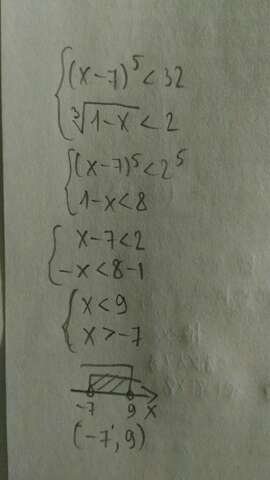 (x-7)⁵<32
∛1-x<2
(x-7)⁵<2⁵
1-x<8
x-7<2
-x<8-1
x<9
x>-7
-7 9 x
(-7; 9)